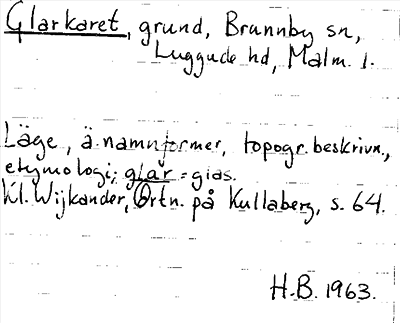 Glarkaret, grund, Brunnby sn,
Luggude hd, Malm. l.
Läge, ä. namnformer, topogr. beskrivn.,
etymologi; glar = glas.
Kl. Wijkander, Ortn. på Kullaberg, s. 64.
H.B. 1963.